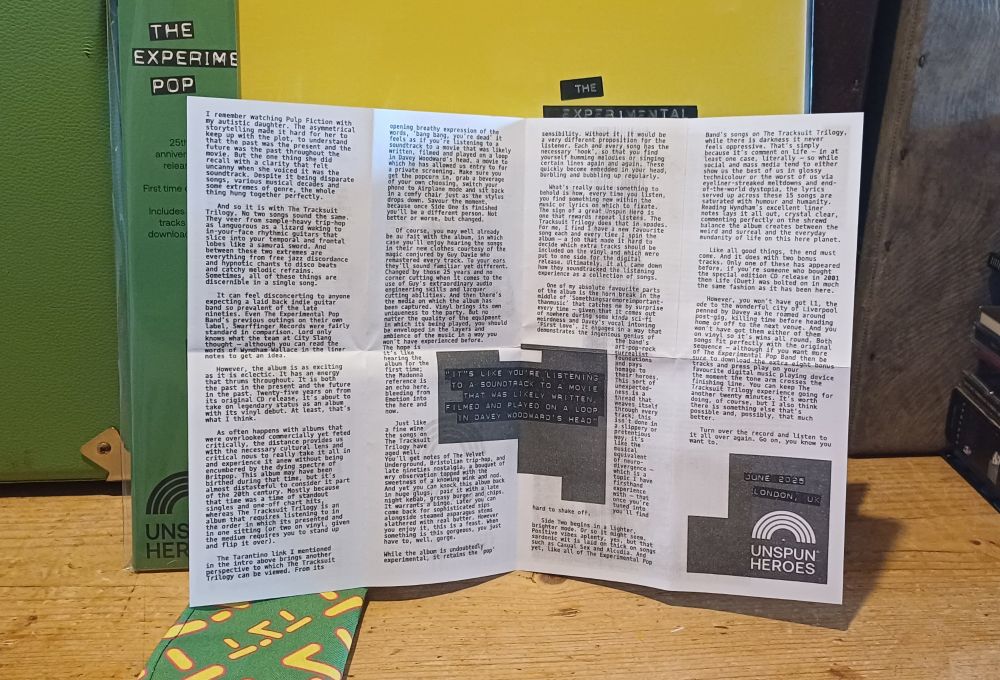 THE
EXPERIME
POP
25th
anniver
relea
First time o
Includes
tracks
downloa
UNSP
HERO
THE
EXPERIMENTAL
I remember watching Pulp Fiction with
my autistic daughter. The asymmetrical
storytelling made it hard for her to
keep up with the plot, to understand
that the past was the present and the
future was the past throughout the
movie. But the one thing she did
recall with a clarity that felt
uncanny when she voiced it was the
soundtrack. Despite it being disparate
songs, various musical decades and
some extremes of genre, the whole
thing hung together perfectly.
And so it is with The Tracksuit
Trilogy. No two songs sound the same.
They veer from sample-heavy trip-hop
as languorous as a lizard waking to
in-your-face rhythmic guitars that
slice into your temporal and frontal
lobes like a samurai sword. And
between these two extremes are
everything from free jazz discordance
and hypnotic chants to disco beats
and catchy melodic refrains.
Sometimes, all of these things are
discernible in a single song.
It can feel disconcerting to anyone
expecting a laid back indie guitar
band so prevalent of the late
nineties. Even The Experimental Pop
Band's previous outings on their own
label, Swarffinger Records were fairly
standard in comparison. Lord only
knows what the team at City Slang
thought – although you can read the
words of Wyndham Wallace in the liner
notes to get an idea.
However, the album is as exciting
as it is eclectic. It has an energy
that thrums throughout. It is both
the past in the present and the future
in the past. Twenty-five years on from
its original CD release, it's about to
take on legendary status as an album
with its vinyl debut. At least, that's
what I think.
As often happens with albums that
were overlooked commercially yet feted
critically, the distance provides us
with the necessary cultural lens and
critical nous to really take it all in
and experience it anew without being
encumbered by the dying spectre of
Britpop. This album may have been
birthed during that time, but it's
almost distasteful to consider it part
of the 20th century. Mostly because
that time was a time of standout
singles and one-off chart hits,
whereas The Tracksuit Trilogy is an
album that requires listening to in
the order in which its presented and
in one sitting (or two on vinyl, given
the medium requires you to stand up
and flip it over).
The Tarantino link I mentioned
in the intro above brings another
perspective to which The Tracksuit
Trilogy can be viewed. From its
opening breathy expression of the
words, 'bang bang, you're dead' it
feels as if you're listening to a
soundtrack to a movie that was likely
written, filmed and played on a loop
in Davey Woodward's head, a movie to
which he has allowed us entry to for
a private screening. Make sure you
get the popcorn in, grab a beverage
of your own choosing, switch your
phone to Airplane mode and sit back
in a comfy chair just as the stylus
drops down. Savour the moment,
because once Side One is finished
you'll be a different person. Not
better or worse, but changed.
Of course, you may well already
be au fait with the album, in which
case you'll enjoy hearing the songs
in their new clothes courtesy of the
magic conjured by Guy Davie who
remastered every track. To your ears
they'll sound familiar yet different.
Changed by those 25 years and no
corner cutting when it comes to the
use of Guy's extraordinary audio
engineering skills and lacquer
cutting abilities. And then there's
the media on which the album has
been captured. Vinyl brings its own
uniqueness to the party. But no
matter the quality of the equipment
in which its being played, you should
be enveloped in the layers and
ambience of the music in a way you
won't have experienced before.
The hope is
it's like
hearing the
album for the
first time;
the Madonna
reference is
an echo here,
bleeding from
Emotion into
the here and
now.
Just like
a fine wine
the songs on
The Tracksuit
Trilogy have
aged well.
You'll get notes of The Velvet
Underground, Bristolian trip-hop, and
late nineties nostalgia, a bouquet of
wry observation topped with the
sweetness of a knowing wink and nod.
And yet you can knock this album back
in huge glugs, pair it with a late
night kebab, greasy burger and chips.
It warrants a binge. Later you can
come back for sophisticated sips
alongside steamed asparagus stems
slathered with real butter. However
you enjoy it, this is a feast. When
something is this gorgeous, you just
have to, well, gorge.
While the album is undoubtedly
experimental, it retains the 'pop'
sensibility. Without it, it would be
a very different proposition for the
listener. Each and every song has the
necessary 'hook', so that you find
yourself humming melodies or singing
certain lines again and again. These
quickly become embedded in your head,
burbling and bubbling up regularly.
What's really quite something to
behold is how, every time you listen,
you find something new within the
music or lyrics on which to fixate.
The sign of a great Unspun Hero is
one that rewards repeat listens. The
Tracksuit Trilogy does that in spades.
For me, I find I have a new favourite
song each and every time I spin the
album – a job that made it hard to
decide which extra tracks should be
included on the vinyl and which were
put to one side for the digital
release. Ultimately, it all came down
how they soundtracked the listening
experience as a collection of songs.
One of my absolute favourite parts
of the album is the horn break in the
middle of 'Somethingsaremoreimportant-
thanmusic' that catches me by surprise
every time – given that it comes out
of nowhere during some kinda sci-fi
weirdness and Davey's vocal intoning
'First love'. It engages in a way that
demonstrates the ingenious genius of
the band's
art-pop-rock
surrealist
foundations
and pays
homage to
their heroes.
This sort of
unexpected-
ness is a
thread that
weaves itself
through every
track, this
isn't done in
a slippery or
pretentious
way; it's
like the
musical
equivalent
of neuro-
divergence –
which is a
topic I have
firsthand
experience
with – that
once you're
tuned into
you'll find
hard to shake off.
Side Two begins in a lighter,
brighter mode. Or so it might seem.
Positive vibes aplenty, yes, but a
sardonic wit is laid on thick on songs
such as Casual Sex and Alcidia. And
yet, like all of The Experimental Pop
"IT'S LIKE YOU'RE LISTENING
TO A SOUNDTRACK TO A MOVIE
THAT WAS LIKELY WRITTEN,
FILMED AND PLAYED ON A LOOP
IN DAVEY WOODWARD'S HEAD"
Band's songs on The Tracksuit Trilogy,
while there is darkness it never
feels oppressive. That's simply
because it's comment on life – in at
least one case, literally – so while
social and mass media tend to either
show us the best of us in glossy
technicolour or the worst of us via
eyeliner-streaked meltdowns and end-
of-the-world dystopia, the lyrics
served up across these 15 songs are
saturated with humour and humanity.
Reading Wyndham's excellent liner
notes lays it all out, crystal clear,
commenting perfectly on the shrewd
balance the album creates between the
weird and surreal and the everyday
mundanity of life on this here planet.
Like all good things, the end must
come. And it does with two bonus
tracks. Only one of these has appeared
before, if you're someone who bought
the special edition CD release in 2001
then Life (Duet) was bolted on in much
the same fashion as it has been here.
However, you won't have got L1, the
ode to the wonderful city of Liverpool
penned by Davey as he roamed around
post-gig, killing time before heading
home or off to the next venue. And you
won't have got them either of them
on vinyl so it's wins all round. Both
songs fit perfectly with the original
sequence – although if you want more
of The Experimental Pop Band then be
sure to download the extra eight bonus
tracks and press play on your
favourite digital music playing device
the moment the tone arm crosses the
finishing line. You can keep The
Tracksuit Trilogy experience going for
another twenty minutes. It's worth
doing, of course, but I also think
there is something else that's
possible and, possibly, that much
better.
Turn over the record and listen to
it all over again. Go on, you know you
want to.
JUNE 2025
LONDON, UK
UNSPUN
HEROES